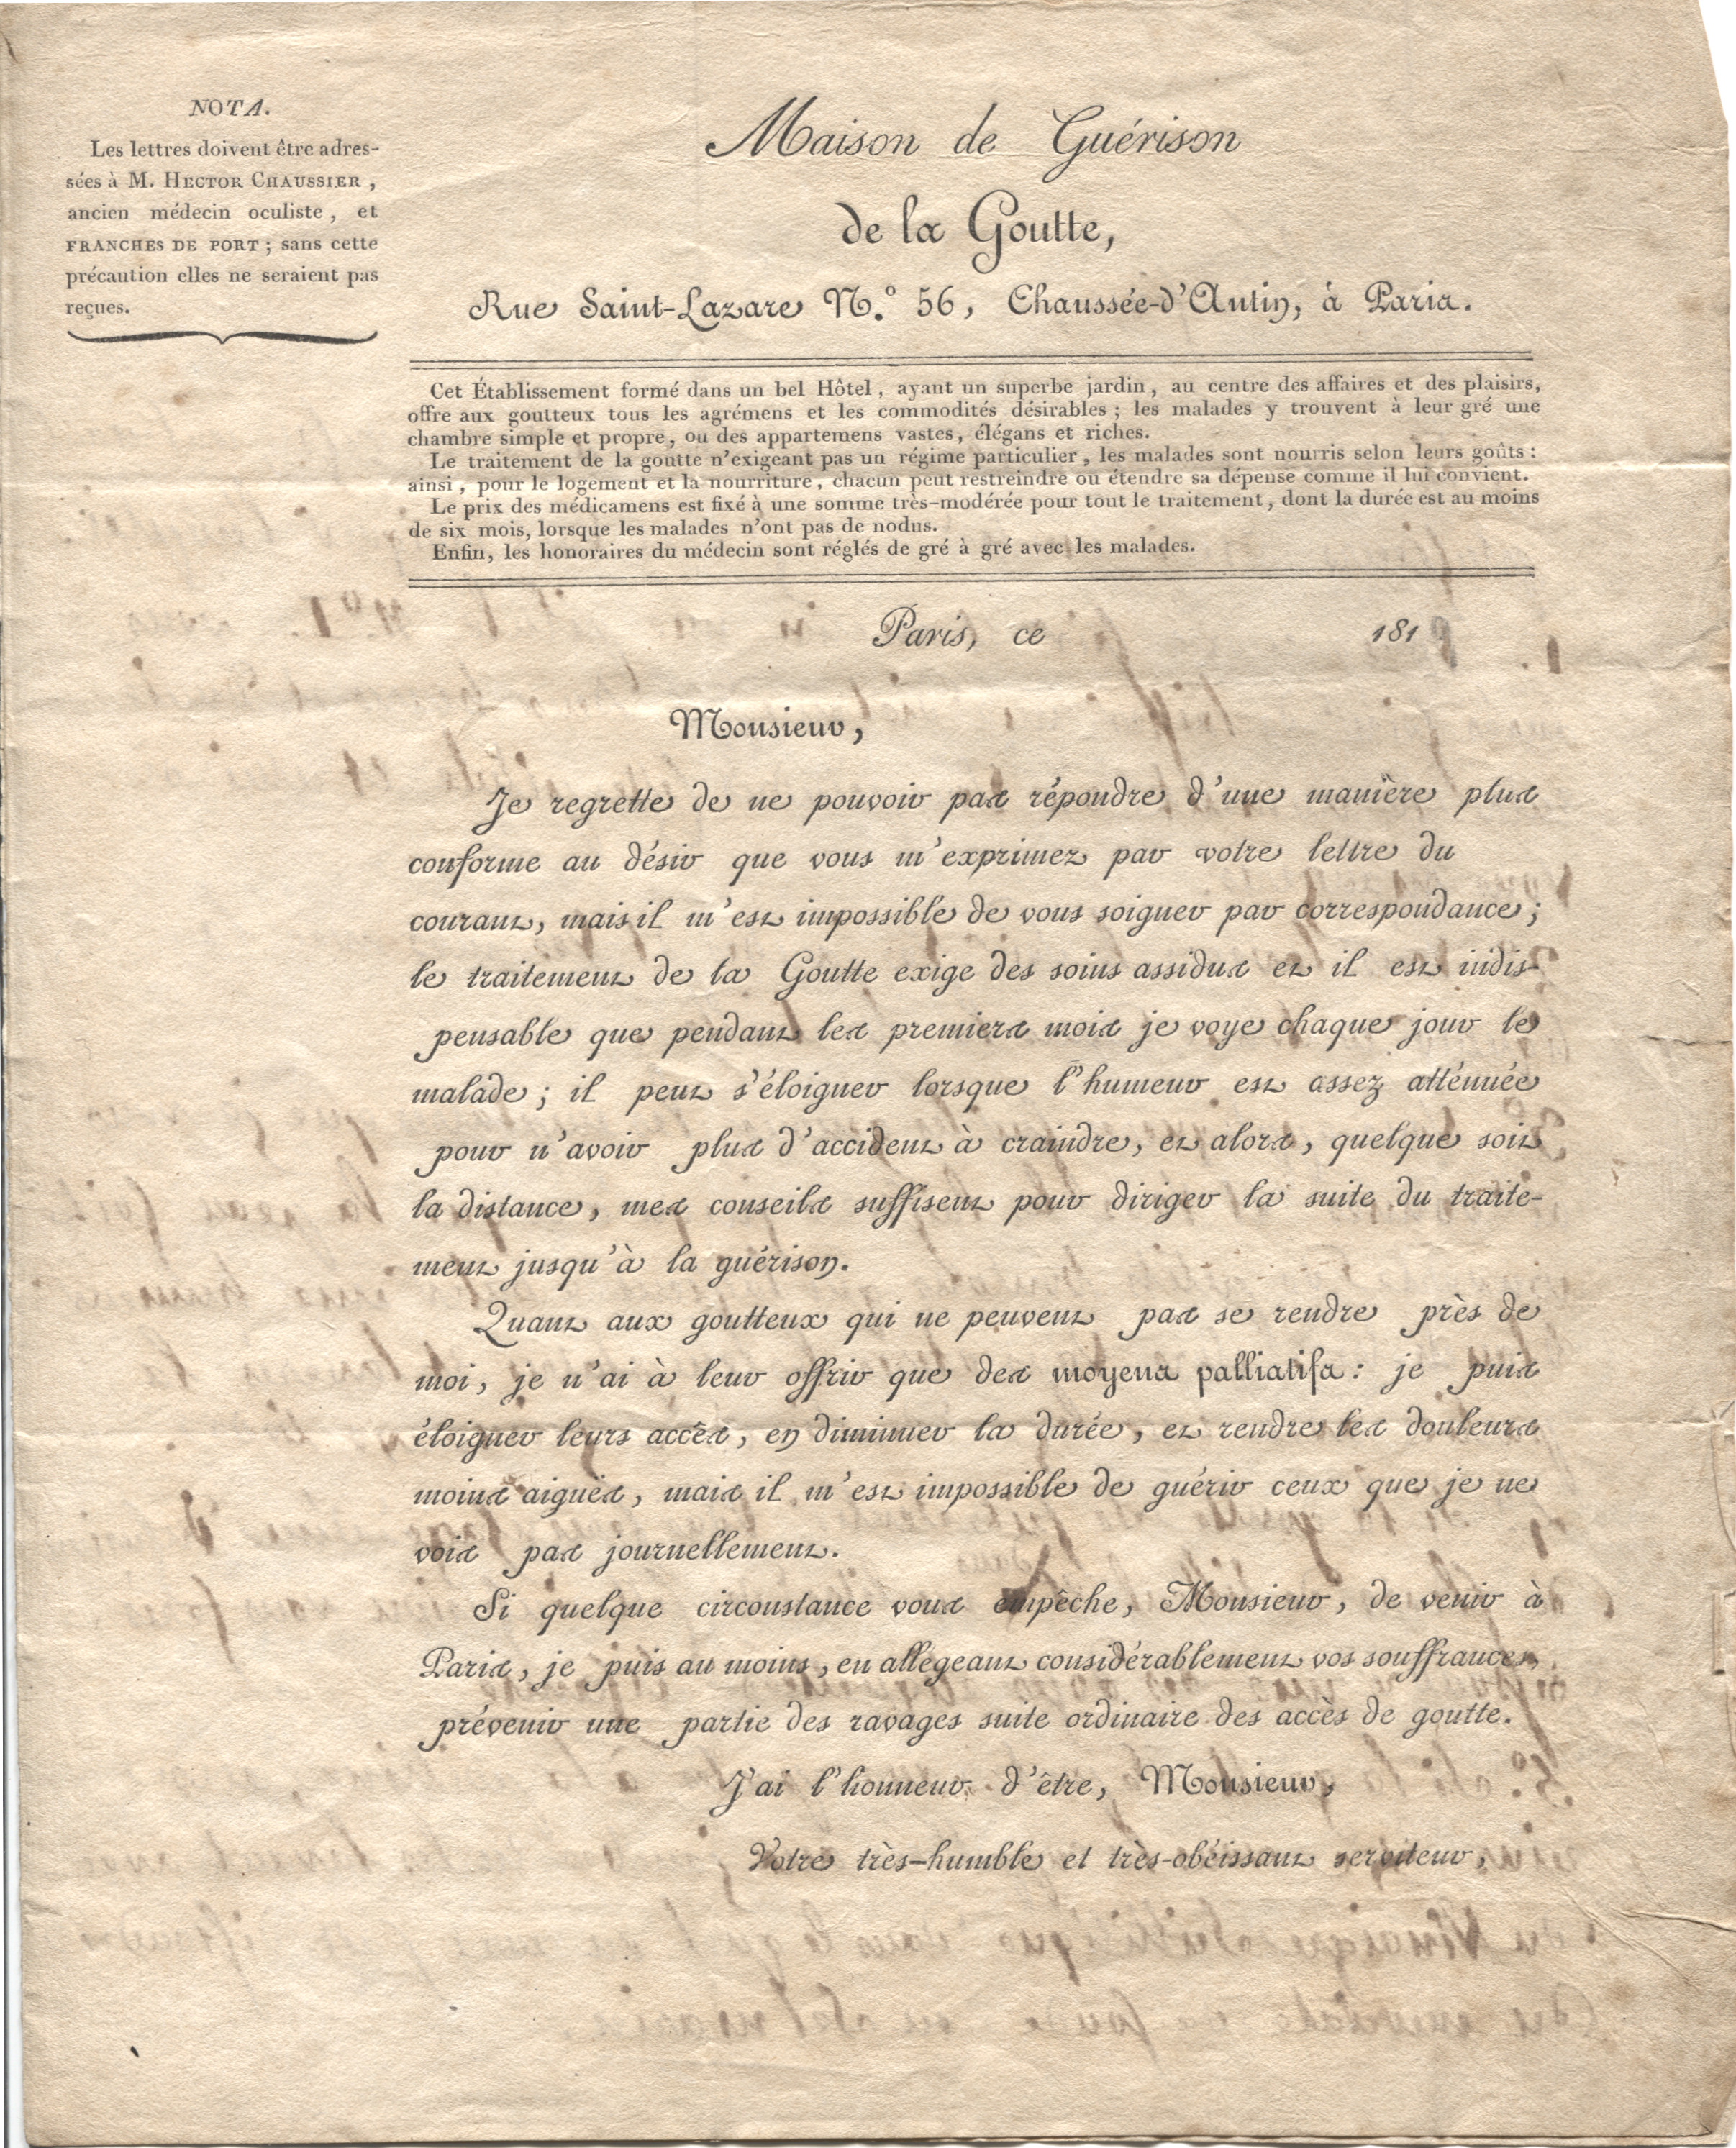 NOTA.
Les lettres doivent être adres-
sées à M. HECTOR CHAUSSIER,
ancien médecin oculiste, et
FRANCHES DE PORT; sans cette
précaution elles ne seraient pas
reçues.
Maison de Guérison
de la Goutte,
Rue Saint-Lazare N.º 56, Chaussée-d'Antin, à Paris.
Cet Établissement formé dans un bel Hôtel, ayant un superbe jardin, au centre des affaires et des plaisirs,
offre aux goutteux tous les agrémens et les commodités désirables; les malades y trouvent à leur gré une
chambre simple et propre, ou des appartemens vastes, élégans et riches.
Le traitement de la goutte n'exigeant pas un régime particulier, les malades sont nourris selon leurs goûts:
ainsi, pour le logement et la nourriture, chacun peut restreindre ou étendre sa dépense comme il lui convient.
Le prix des médicamens est fixé à une somme très-modérée pour tout le traitement, dont la durée est au moins
de six mois, lorsque les malades n'ont pas de nodus.
Enfin, les honoraires du médecin sont réglés de gré à gré avec les malades.
Paris, ce 181
Monsieur,
Je regrette de ne pouvoir pas répondre d'une manière plus
conforme au désir que vous m'exprimez par votre lettre du
courant, mais il m'est impossible de vous soigner par correspondance;
le traitement de la Goutte exige des soins assidus et il est indis-
pensable que pendant les premiers mois je voye chaque jour le
malade; il peut s'éloigner lorsque l'humeur est assez atténuée
pour n'avoir plus d'accident à craindre, et alors, quelque soit
la distance, mes conseils suffisent pour diriger la suite du traite-
ment jusqu'à la guérison.
Quant aux goutteux qui ne peuvent pas se rendre près de
moi, je n'ai à leur offrir que des moyens palliatifs: je puis
éloigner leurs accès, en diminuer la durée, et rendre les douleurs
moins aiguës, mais il m'est impossible de guérir ceux que je ne
vois pas journellement.
Si quelque circonstance vous empêche, Monsieur, de venir à
Paris, je puis au moins, en allégeant considérablement vos souffrances,
prévenir une partie des ravages suite ordinaire des accès de goutte.
J'ai l'honneur d'être, Monsieur,
Votre très-humble et très-obéissant serviteur,